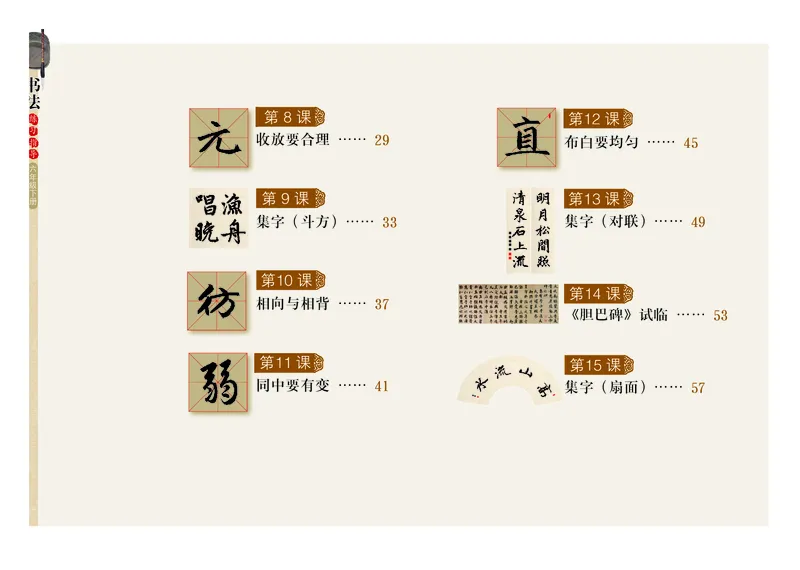 书法
练习指导
六年级下册
元
第 8 课
收放要合理 …… 29
渔舟
唱晚
第 9 课
集字（斗方）…… 33
彷
第10 课
相向与相背 …… 37
弱
第11 课
同中要有变 …… 41
直
第12 课
布白要均匀 …… 45
明月松間照
清泉石上流
第13 课
集字（对联）…… 49
第14 课
《胆巴碑》试临 …… 53
高山流水
第15 课
集字（扇面）…… 57